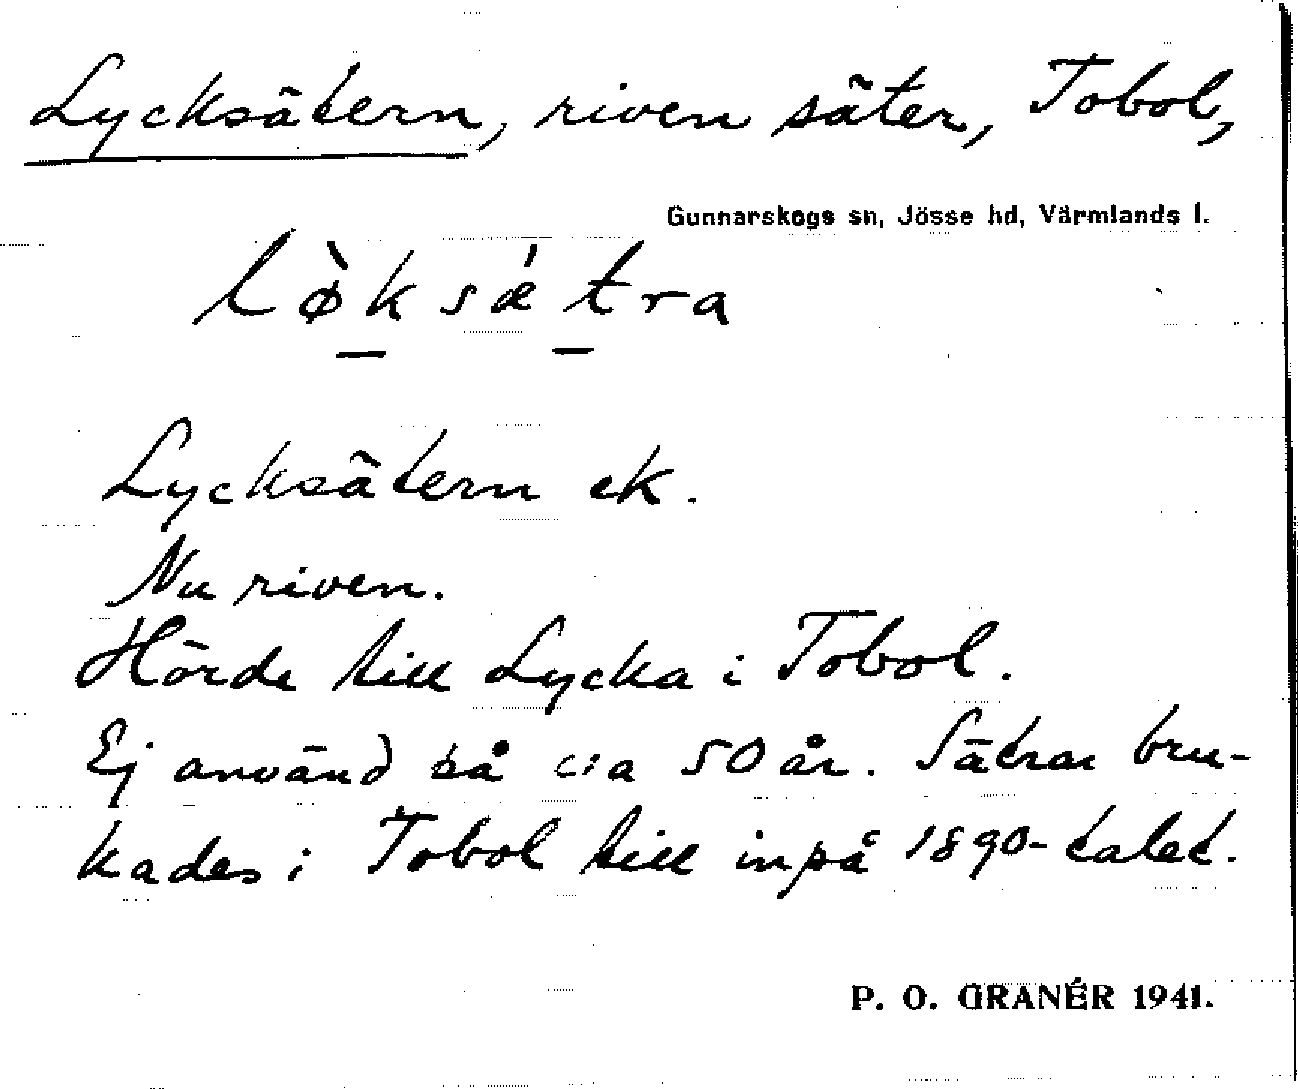 Lycksätern, riven säter, Tobol,
Gunnarskogs sn, Jösse hd, Värmlands l.
lø̀ksǽtra
Lycksätern ek.
Nu riven.
Hörde till Lycka i Tobol.
Ej använd på c:a 50 år. Sätrar bru-
kades i Tobol till inpå 1890-talet.
P. O. GRANÉR 1941.